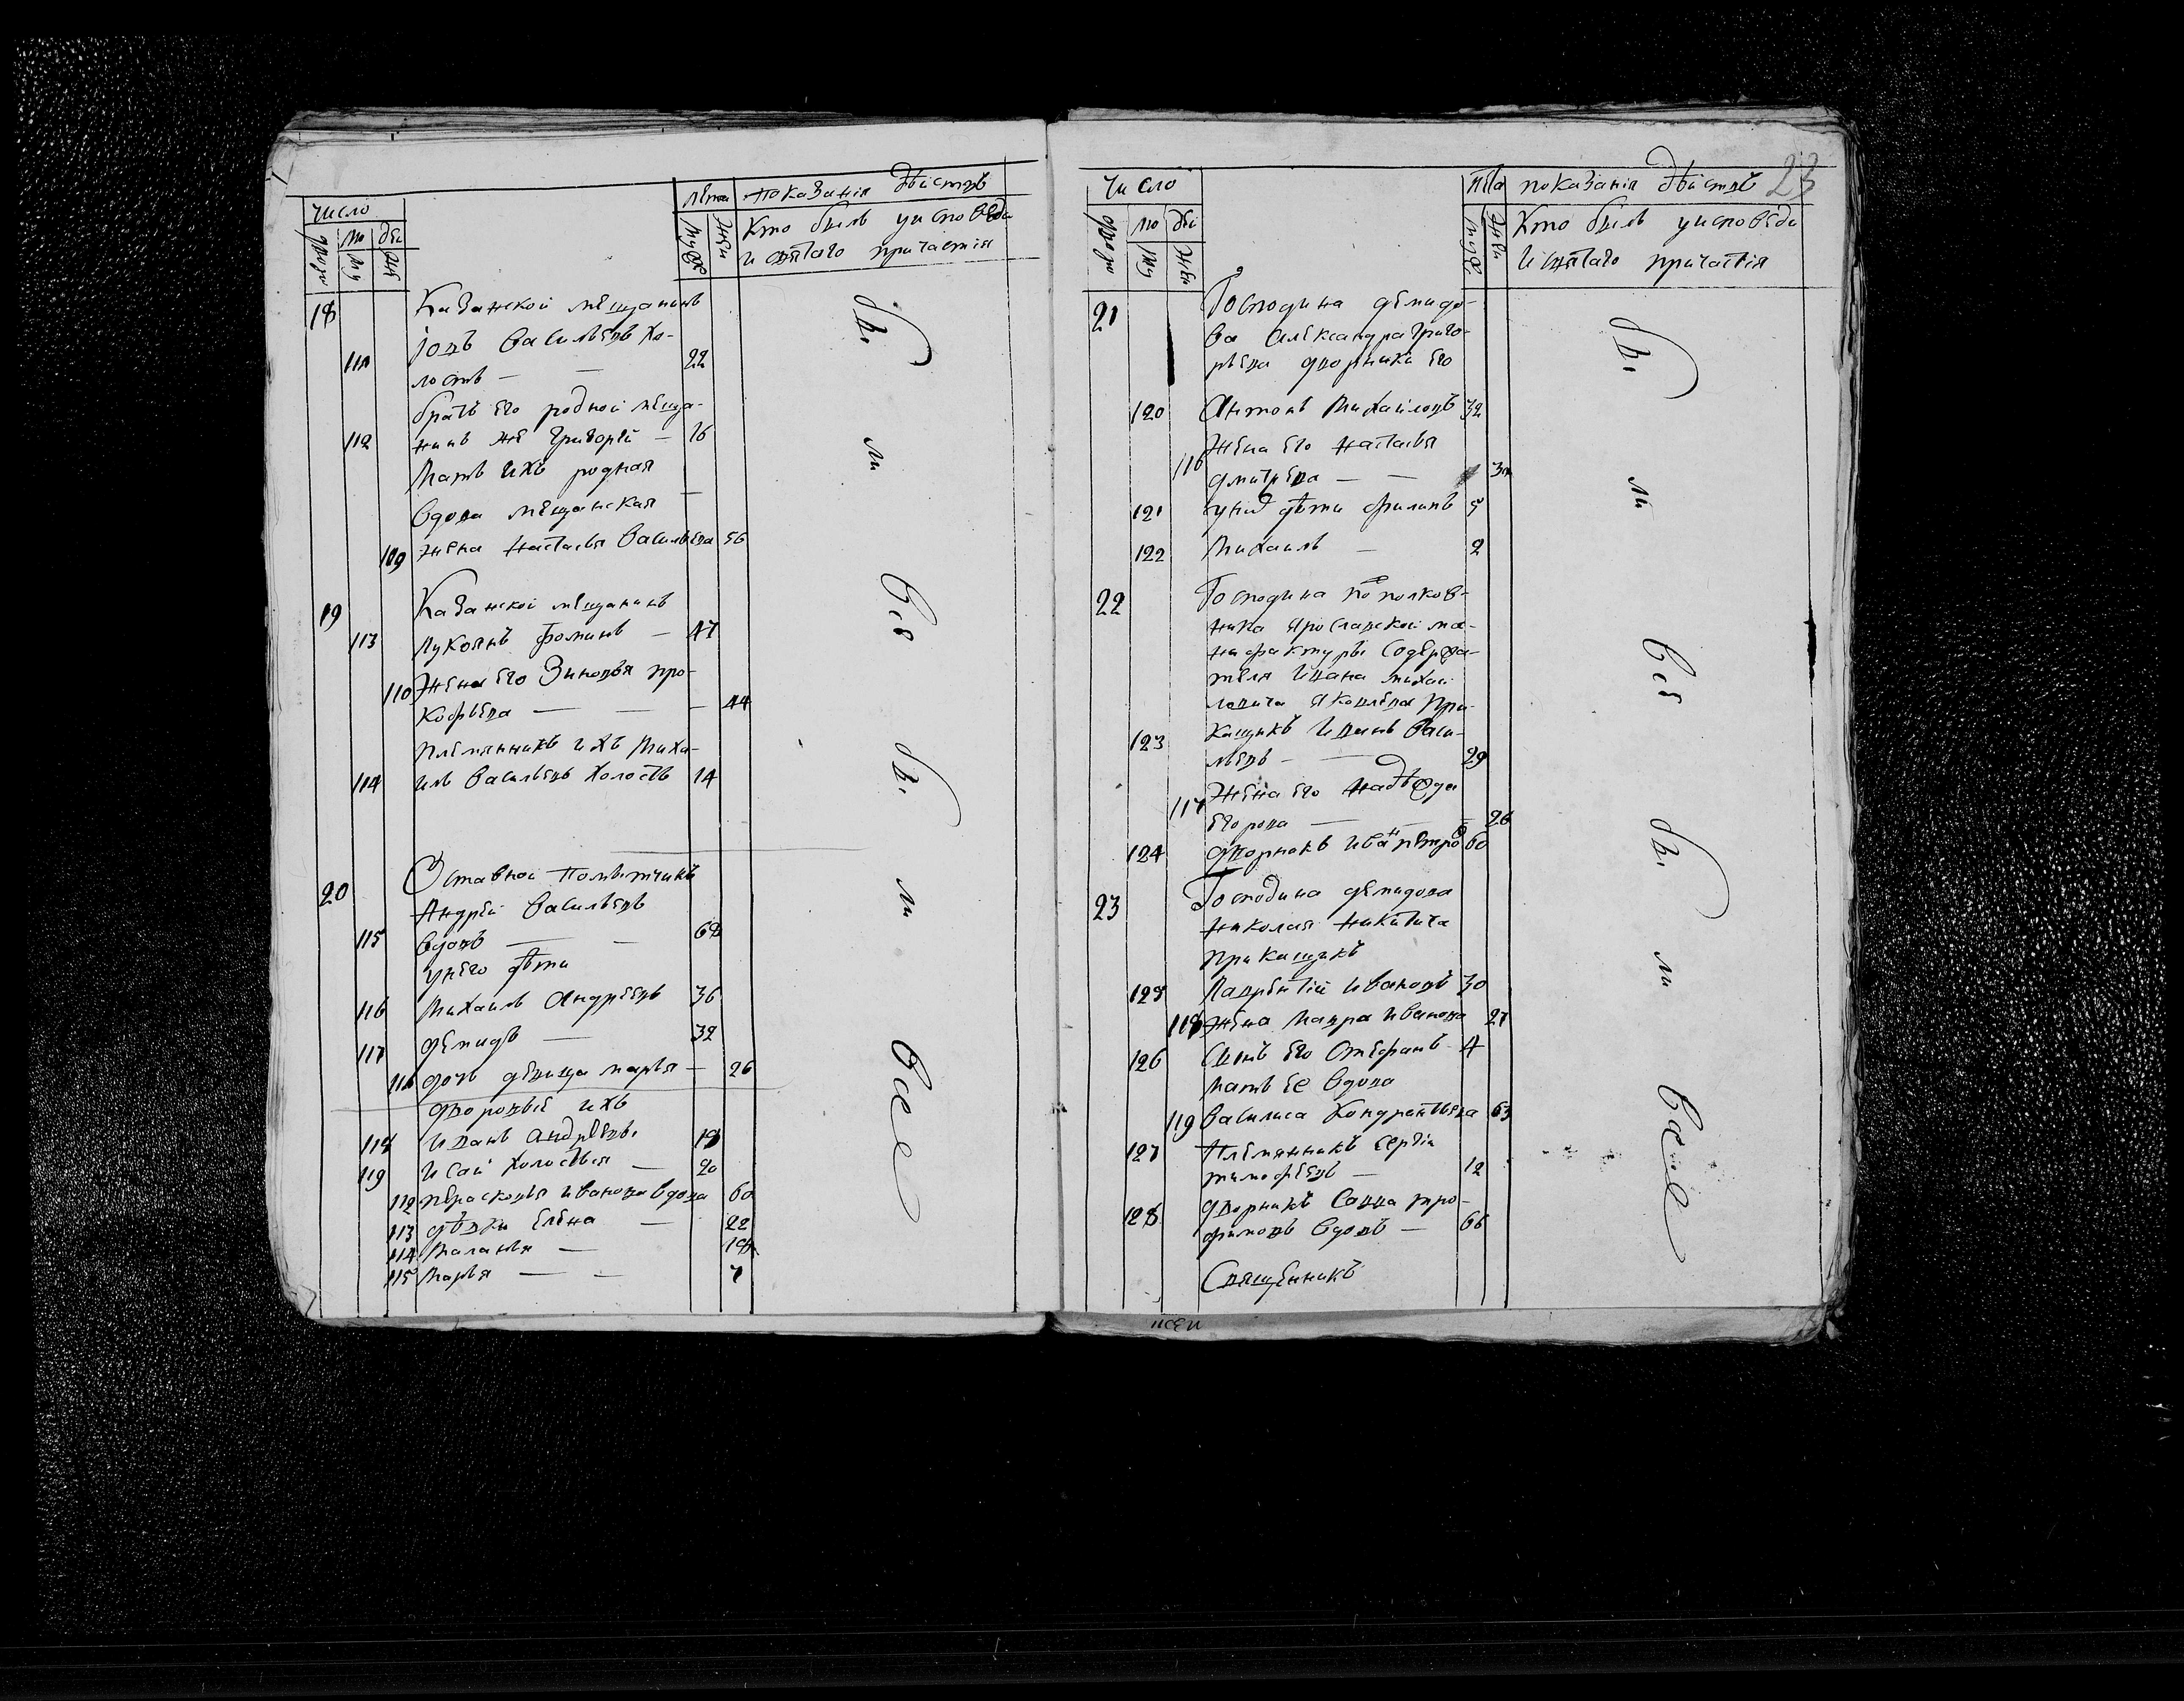 число
лѣта показанія дѣйствъ
Кто былъ уисповѣди
и святаго причастія
18 Казанской мѣщанинъ
Іовъ Васильевъ хо-
111 лостъ — — 22
братъ его родной мѣща-
112 нинъ же Григорей — 16
Мать ихъ родная
вдова мѣщанская
109 жена Настасья Васильева 56
19 Казанской мѣщанинъ
113 Лукоянъ Фоминъ — 47
110 Жена его Зиновья про-
кофьева — — 44
племянникъ ихъ Миха-
114 илъ Васильевъ холостъ 14
20 Оставной повытчикъ
Андрей Васильевъ
115 вдовъ — 68
унего дѣти
116 Михаилъ Андреевъ 36
117 демидъ — 32
111 дочь девица марья — 26
дворовые ихъ
118 Иванъ андреевъ 18
119 Исай холостыя — 20
112 Перасковья иванова вдова 60
113 дѣвки Елена — 22
114 Маланья — 18
115 Марья — — 7
были все были все
23
число
лѣта показанія дѣйствъ
Кто былъ уисповѣди
и святаго причастія
21 Господина демидо-
ва Александра Григо-
рьева дворники его
120 Антонъ Михайловъ 32
116 Жена его настасья
дмитрева — —
121 унихъ дѣти филипъ 5
122 Михаилъ — 2
22 Господина по полков-
ника Ярославской ма-
нифактуры содержа-
теля Ивана михай
ловича Яковлева при-
123 кащикъ Иванъ Васи-
льевъ — — 29
117 Жена его надѣжда
егорова — — 26
124 дворникъ иванъ петро 60
23 Господина демидова
николая никитича
прикащикъ
125 Лаврентий ивановъ 30
118 жена Мавра иванова 27
126 сынъ его стефанъ 4
мать ее вдова
119 Василиса Кондратьева 63
127 Племянникъ сергій
тимофеевъ — 12
128 дворникъ Савва тро-
фимовъ вдовъ — 66
Священникъ
были все были все